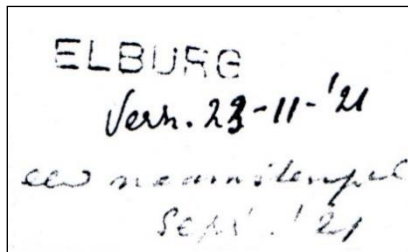 ELBURG
Verz. 23-11-'21
een naamstempel
Sept. '21